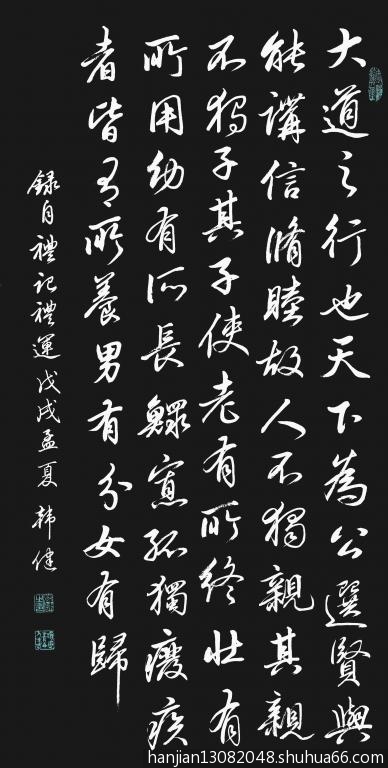 大道之行也天下為公選賢與
能講信脩睦故人不獨親其親
不獨子其子使老有所終壯有
所用幼有所長鰥寡孤獨癈疾
者皆有所養男有分女有歸
錄自禮記禮運戊戌孟夏韓健
hanjian13082048.shuhua66.com